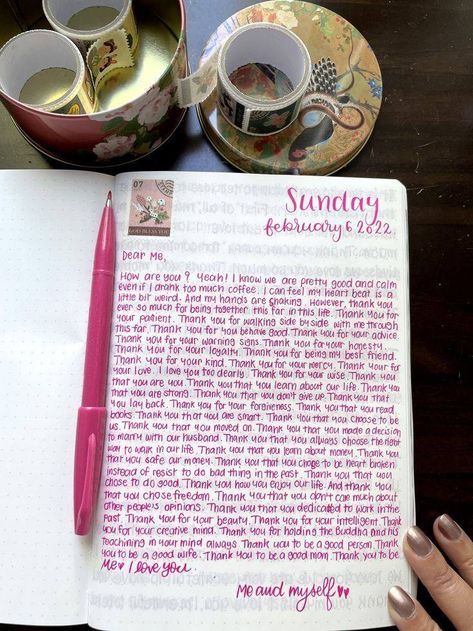 07
GOD BLESS YOU
Sunday
february 6 2022
Dear Me,
How are you? Yeah! I know we are pretty good and calm
even if I drank too much coffee. I can feel my heart beat is a
little bit weird. And my hands are shaking. However, thank you
ever so much for being together this far in this life. Thank you for
your patient. Thank you for walking side by side with me through
this far. Thank you for you behave good. Thank you for your advice.
Thank you for your warning signs. Thank you for your honesty.
Thank you for your loyalty. Thank you for being my best friend.
Thank you for your kind. Thank you for your mercy. Thank your for
your love. I love you too clearly. Thank you for your wise. Thank you
that you are you. Thank you that you learn about our life. Thank you
that you are strong. Thank you that you don't give up. Thank you that
you lay back. Thank you for your forgiveness. Thank you that you read
books. Thank you that you are smart. Thank you that you choose to be
us. Thank you that you moved on. Thank you that you made a decision
to marry with our husband. Thank you that you always choose the right
way to walk in our life. Thank you that you learn about money. Thank you
that you safe our money. Thank you that you chose to be heart broken
instead of resist to do bad thing in the past. Thank you that you
chose to do good. Thank you how you enjoy our life. And thank you
that you chose freedom. Thank you that you don't care much about
other people's opinions. Thank you that you dedicated to work in the
past. Thank you for your beauty. Thank you for your intelligent. Thank
you for your creative mind. Thank you for holding the Buddha and his
teaching in your mind always. Thank you to be a good person. Thank
you to be a good wife. Thank you to be a good mom. Thank you to be
Me ♥ I love you.
Me and myself ♥♥